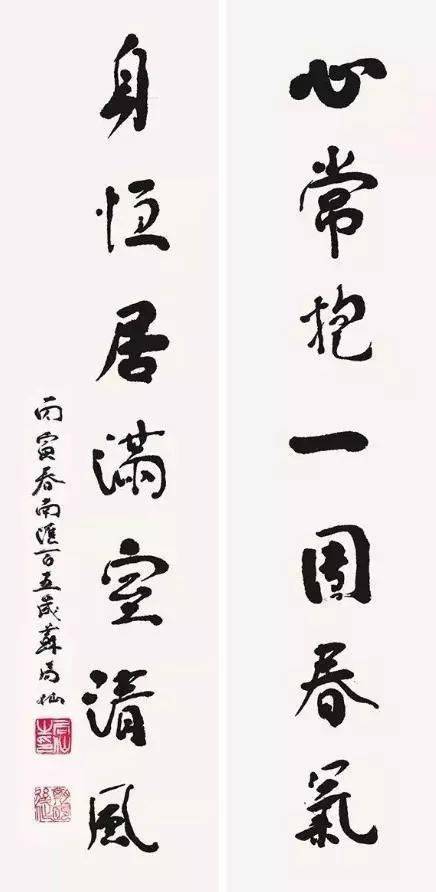 心常抱一團春氣
身恒居滿室清風
丙寅春南匯百五歲蘇局仙